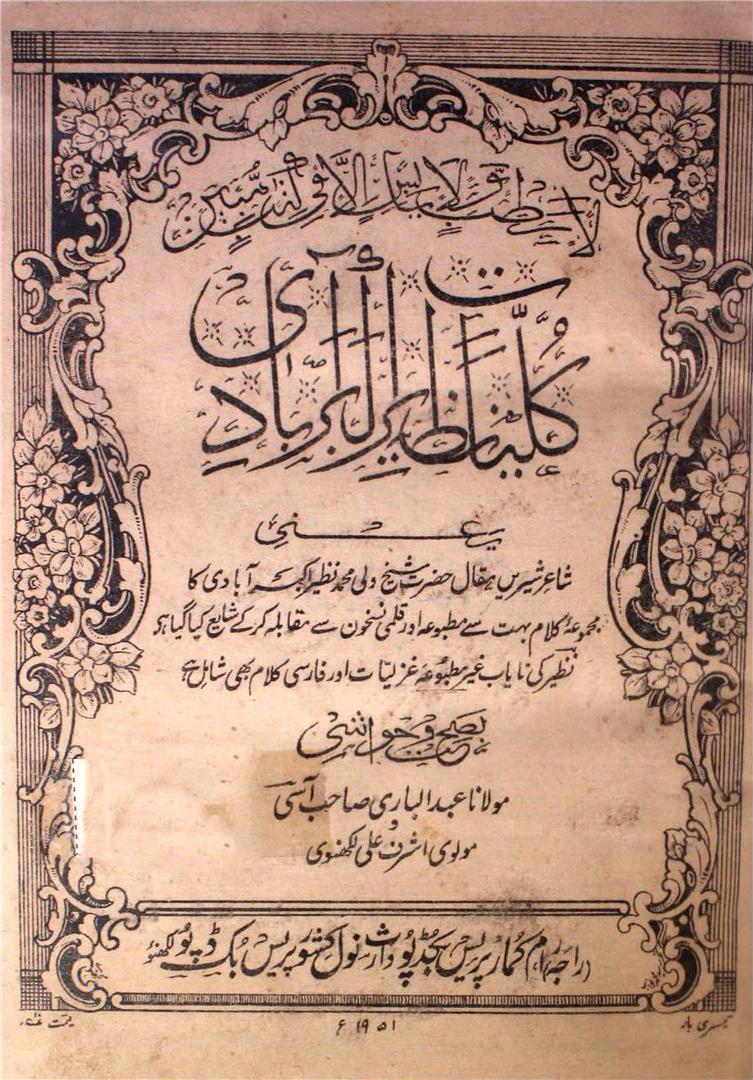 لا رطب ولا یابس الا فی کتاب مبین
کلیات نظیر اکبر آبادی
یعنی
شاعر شیریں مقال حضرت شیخ ولی محمد نظیر اکبر آبادی کا
مجموعۂ کلام بہت سے مطبوعہ اور قلمی نسخوں سے مقابلہ کرکے شایع کیا گیا ہے
نظیر کی نایاب غیر مطبوعہ غزلیات اور فارسی کلام بھی شامل ہے
بتصحیح و حواشی
مولانا عبد الباری صاحب آسی
و
مولوی اشرف علی لکھنوی
(راجہ) رام کمار پریس بکڈپو وارث نولکشور پریس بک ڈپو لکھنؤ
تیسری بار
۱۹۵۱ء
قیمت